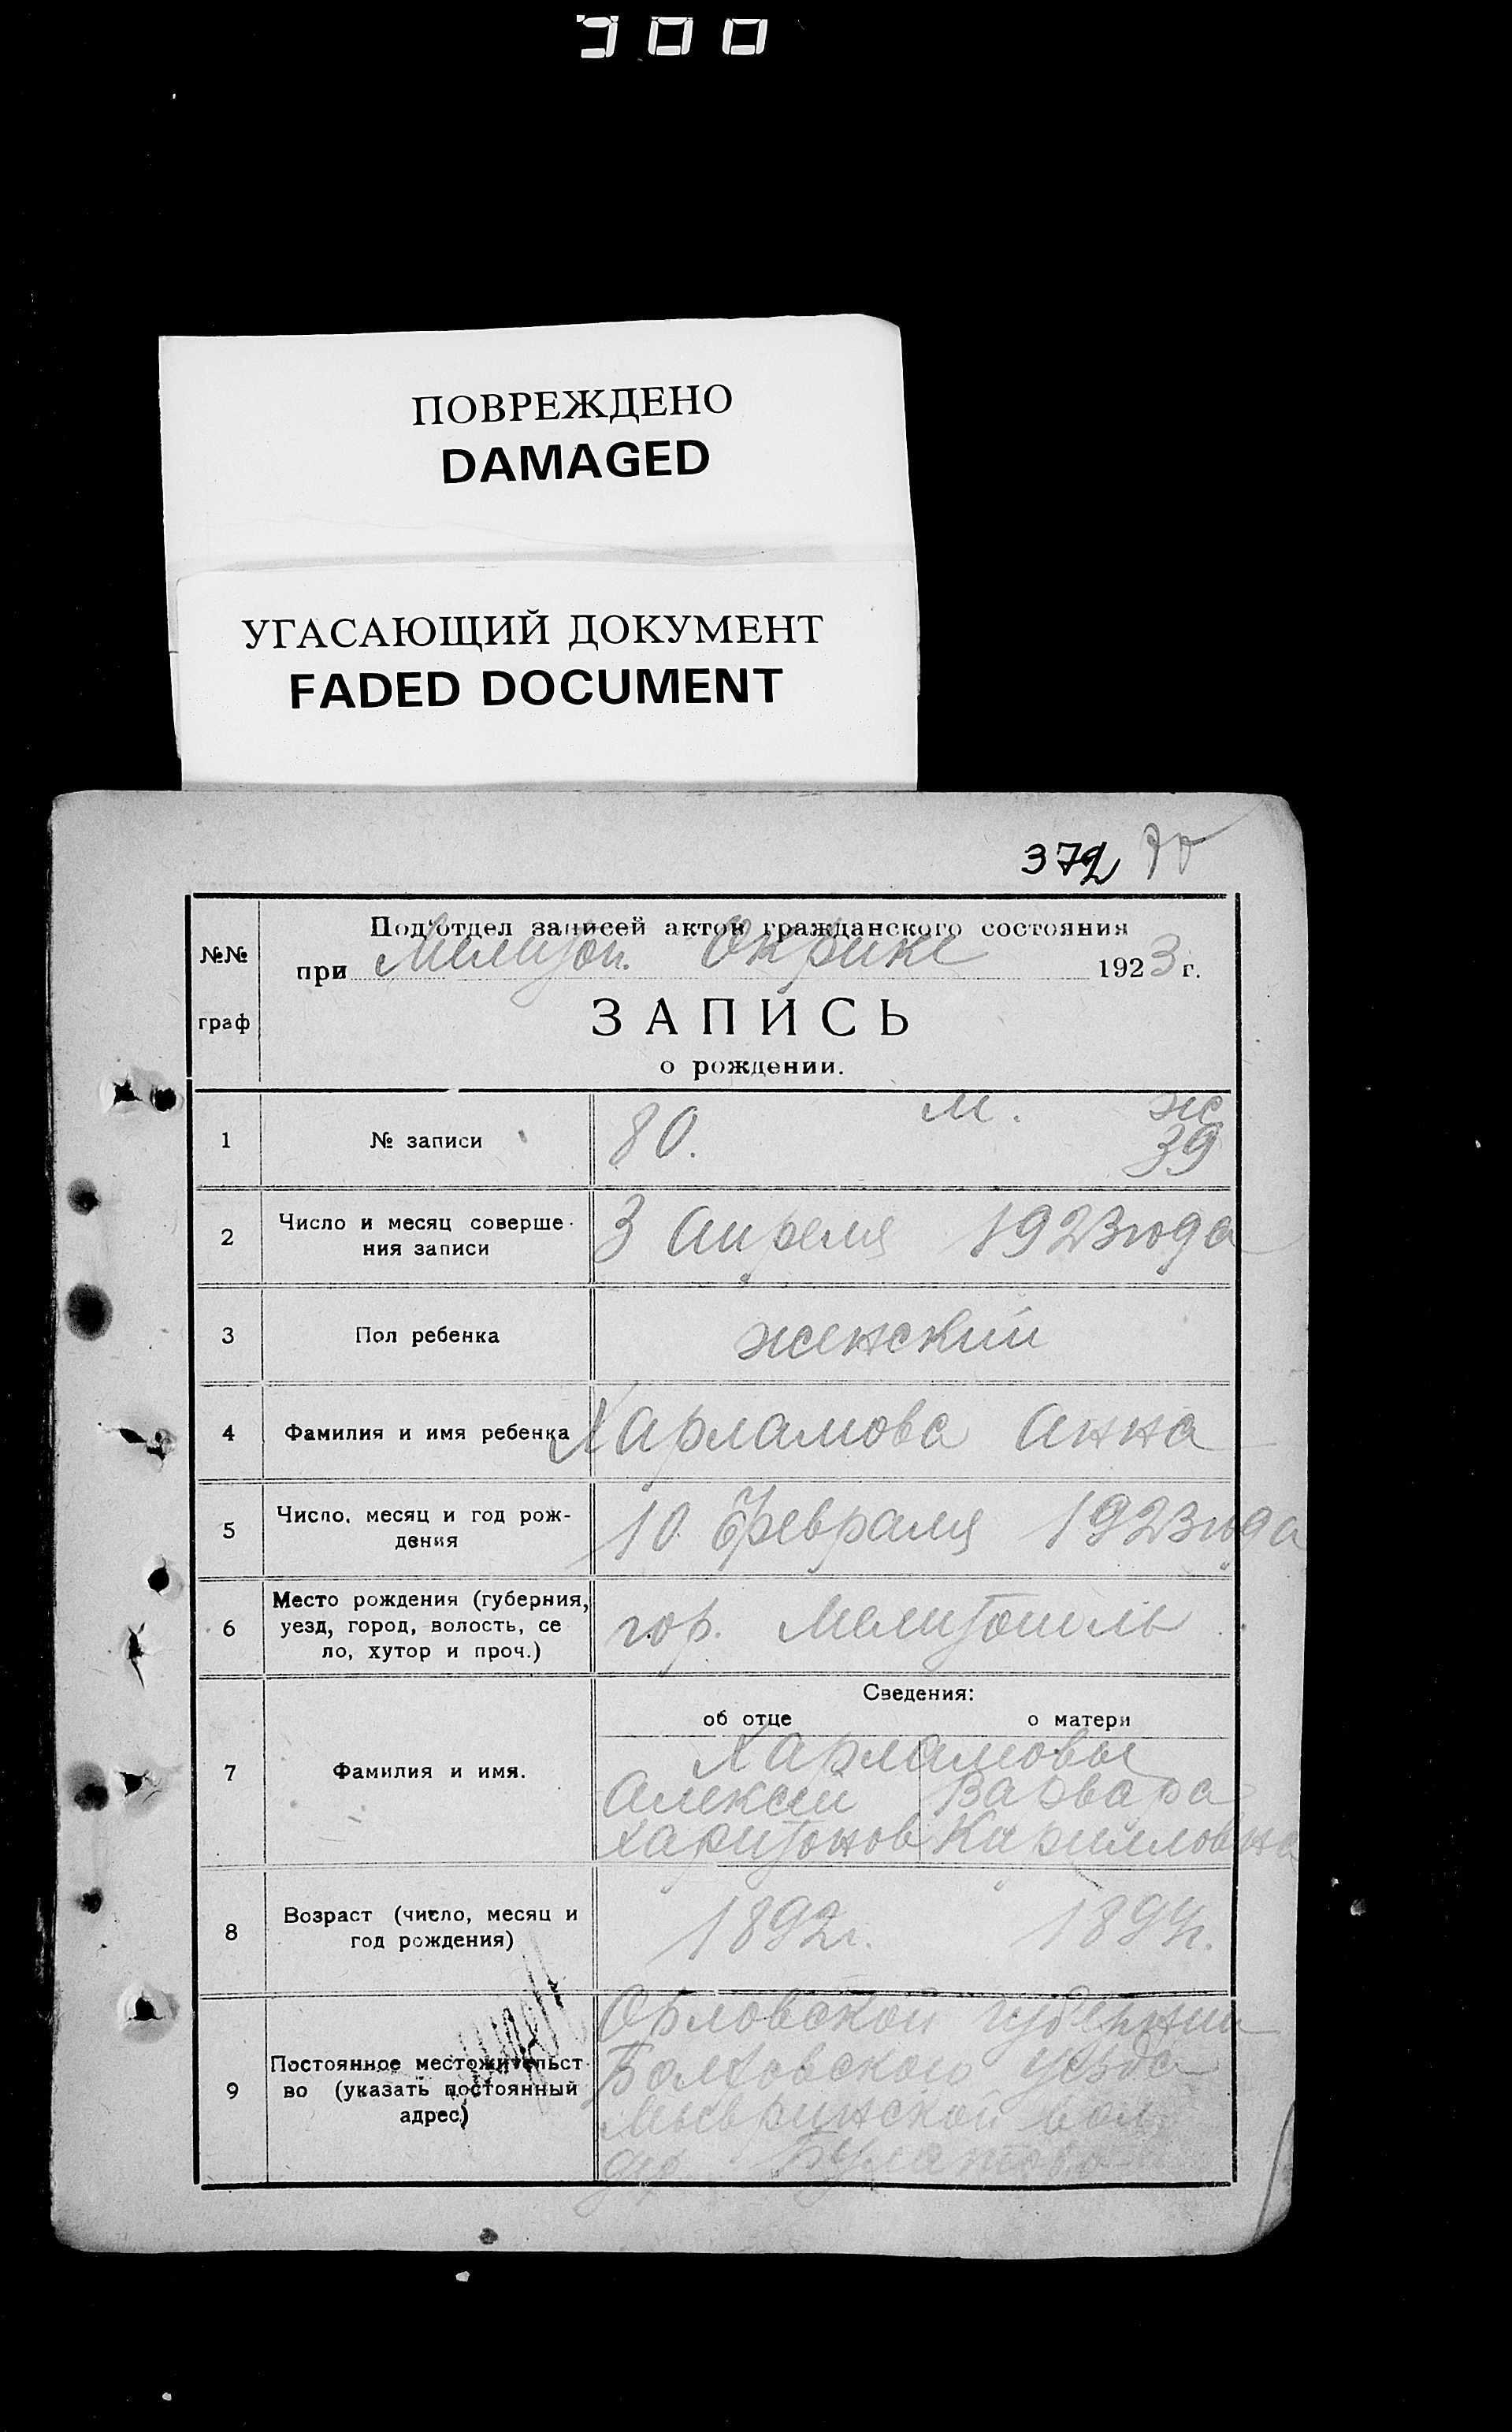 900
ПОВРЕЖДЕНО
DAMAGED
УГАСАЮЩИЙ ДОКУМЕНТ
FADED DOCUMENT
372 70
Под'отдел записей актов гражданского состояния
№№ граф
при Мелитоп. Окрике 1923 г.
ЗАПИСЬ
о рождении.
м. ж
1 № записи 80. 39
2 Число и месяц соверше-
ния записи
3 Апреля 1923 года
3 Пол ребенка женский
4 Фамилия и имя ребенка Харламова Анна
5 Число, месяц и год рож-
дения
10 Февраля 1923 года
6 Место рождения (губерния,
уезд, город, волость, се
ло, хутор и проч.)
гор. Мелитополь
Сведения:
об отце о матери
7 Фамилия и имя.
Харламовы
Алексей Варвара
Харитонов Кирилловна
8 Возраст (число, месяц и
год рождения)
1892г. 1894г.
9 Постоянное местожительст-
во (указать постоянный
адрес)
Орловской губернии
Болховского уезда
вол.
дер.